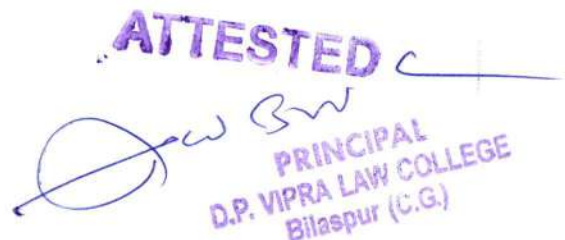 ATTESTED
PRINCIPAL
D.P. VIPRA LAW COLLEGE
Bilaspur (C.G.)